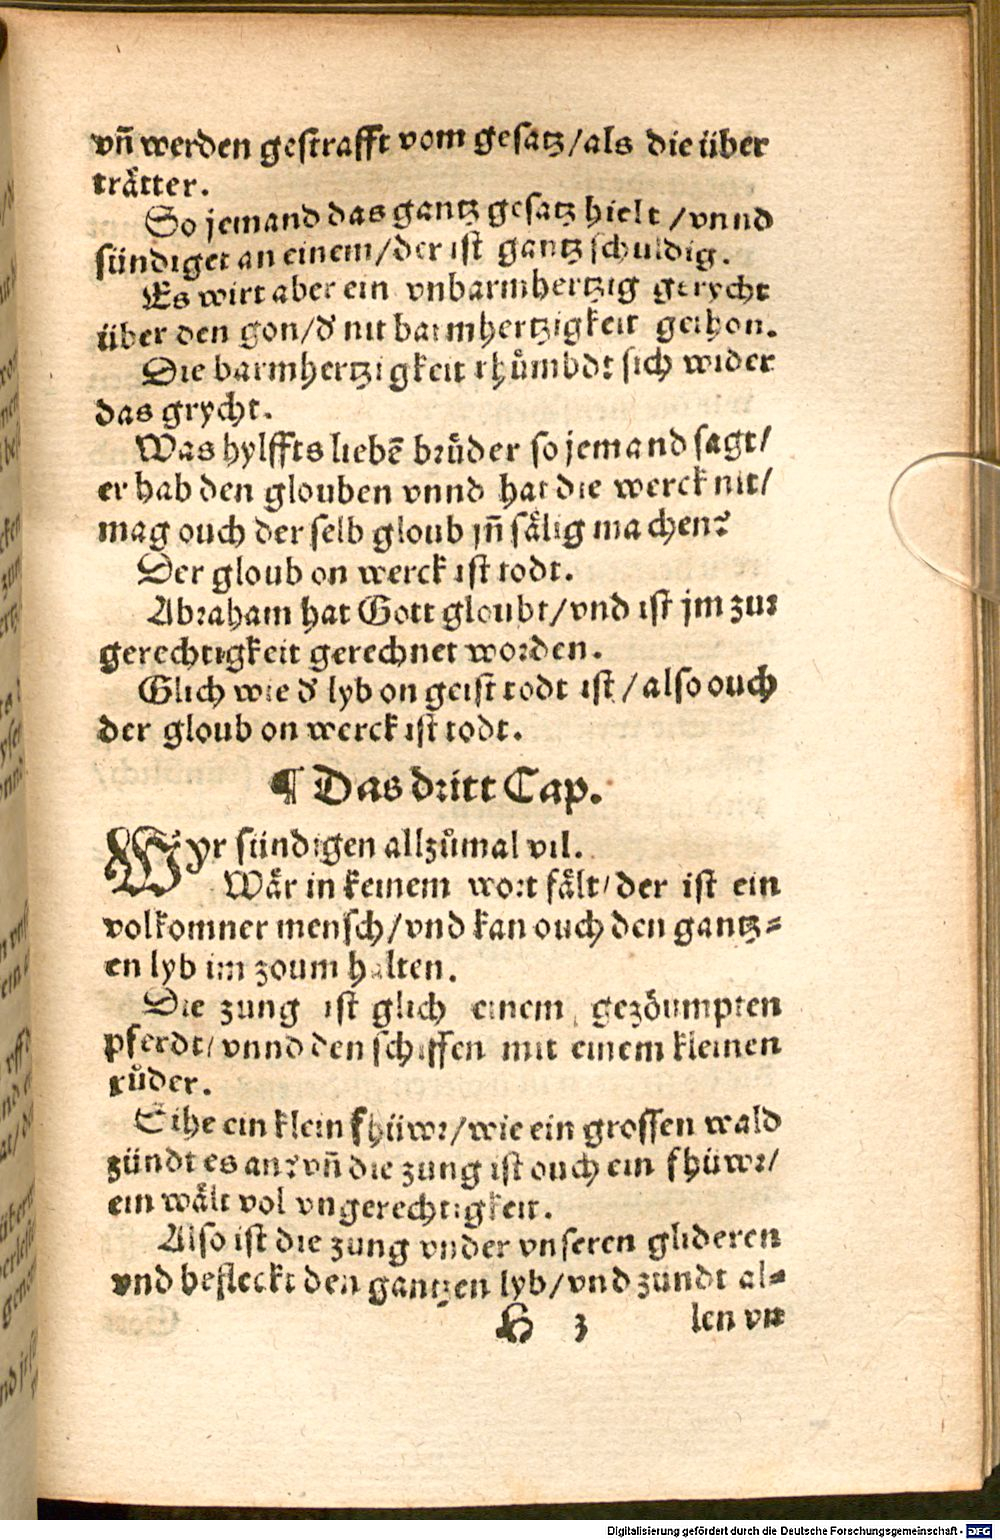 vñ werden gestrafft vom gesatz/als die über
trätter.
So jemand das gantz gesatz hielt /vnnd
sündiget an einem/der ist gantz schuldig.
Es wirt aber ein vnbarmhertzig gerycht
über den gon/d' nit barmhertzigkeit gethon.
Die barmhertzigkeit rhůmbdt sich wider
das grycht.
Was hylffts liebē brůder so jemand sagt/
er hab den glouben vnnd hat die werck nit/
mag ouch der selb gloub jn̄ sälig machen?
Der gloub on werck ist todt.
Abraham hat Gott gloubt/vnd ist jm zur
gerechtigkeit gerechnet worden.
Glich wie d' lyb on geist todt ist/also ouch
der gloub on werck ist todt.
¶ Das dritt Cap.
Wyr sündigen allzůmal vil.
Wär in keinem wort fält/der ist ein
volkomner mensch/vnd kan ouch den gantz=
en lyb im zoum halten.
Die zung ist glich einem gezöumpten
pferdt/vnnd den schiffen mit einem kleinen
růder.
Sihe ein klein fhüwr/wie ein grossen wald
zündt es an?vñ die zung ist ouch ein fhüwr/
ein wält vol vngerechtigkeit.
Also ist die zung vnder vnseren glideren
vnd befleckt den gantzen lyb/vnd zundt al=
H 3 len vn
Digitalisierung gefördert durch die Deutsche Forschungsgemeinschaft - DFG